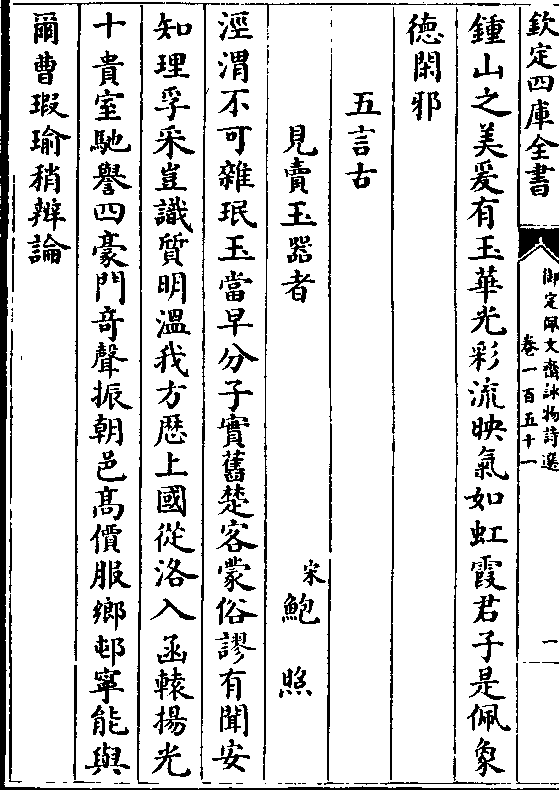 欽定四庫全書
御定佩文齋詠物詩選
卷一百五十一
一
鍾山之美爰有玉華光彩流映氣如虹霞君子是佩象
德閑邪
五言古
見賣玉器者
宋鮑照
涇渭不可雜珉玉當早分子實舊楚客蒙俗謬有聞安
知理孚采豈識質明溫我方歴上國從洛入函轅揚光
十貴室馳譽四豪門奇聲振朝邑髙價服鄉邨寧能與
爾曹瑕瑜稍辯論